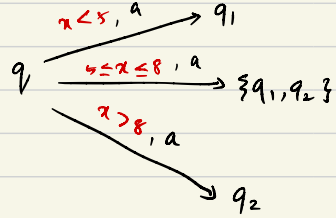 x < 5, a
q₁
q
5 ≤ x ≤ 8, a
{q₁, q₂}
x > 8, a
q₂